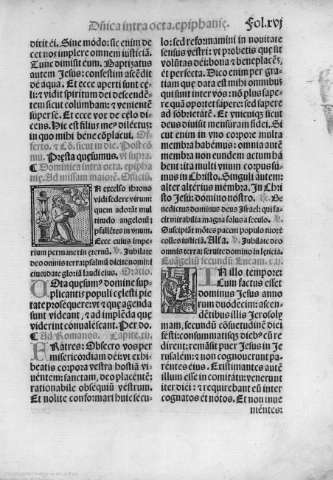 Dñica intra octa. epiphanie. Fol.xvj
dixit ei. Sine modo: sic enim de
cet nos implere omnem iusticiã.
Tunc dimisit eum. Baptizatus
autem Jesus: confestim ascẽdit
de aqua. Et ecce aperti sunt ce-
li: z vidit spiritum dei descenden-
tem sicut columbam: z venientẽ
super se. Et ecce vox de celo di-
cens. Hic est filius meus dilectus:
in quo mihi bene cõplacui.
Presta quesumus. vt supra.
Dominica infra octa. epipha
nie. Ad missam maiorẽ. Officiũ.
IN excelso throno
vidi sedere virum:
quem adorat mul
titudo angelorũ:
psallẽtes in vnum.
Ecce cuius impe-
rium permanet in eternũ. Jubilate
deo omnis terra: psalmũ dicite nomini
eius: date gloriã laudi eius. Oratio.
VOta quesumus domine sup-
plicantis populi celesti pie
tate prosequere: vt z que agenda
sunt videant, z ad implẽda que
viderint conualescant. Per do.
Ad Romanos. Capite.xij.
FRatres: Obsecro vos per
misericordiam dei: vt exhi
beatis corpora vestra hostiã vi
uentem: sanctam, deo placentẽ:
rationabile obsequiũ vestrum.
Et nolite conformari huic secu-
lo: sed reformamini in nouitate
sensus vestri: vt probetis que sit
volũtas dei: bona z beneplacẽs,
et perfecta. Dico enim per gra-
tiam que data est mihi omnibus
qui sunt inter vos: nõ plus sape-
re quã oportet sapere: sed sapere
ad sobrietatẽ. Et vnicuique sicut
deus diuisit mensuram fidei. Si
cut enim in vno corpore multa
membra habemus: omnia autẽ
membra non eundem actum ha
bent: ita multi vnum corpus su-
mus in Christo. Singuli autem:
alter alterius membra. In Chri
sto Jesu: domino nostro.
Benedictus dominus deus Israel: qui fa-
cit mirabilia magna solus a seculo.
Suscipiãt mõtes pacem populo tuo: et
colles iusticiã. Alla. Jubilate deo
omnis terra: seruite domino in leticia
Euangeliũ secundũ Lucam.
IN illo tempore:
Cum factus esset
dominus Jesus anno
rum duodecim: ascen
dẽtibus illis Jerosoly
mam, secundũ cõsuetudinẽ diei
festi: consummatisque diebus cũ re
dirent: remãsit puer Jesus in Je
rusalem: z non cognouerunt pa
rentes eius. Existimantes autẽ
illum esse in comitatu: venerunt
iter diei: z requirebant eũ inter
cognatos et notos. Et non inue
nientes: